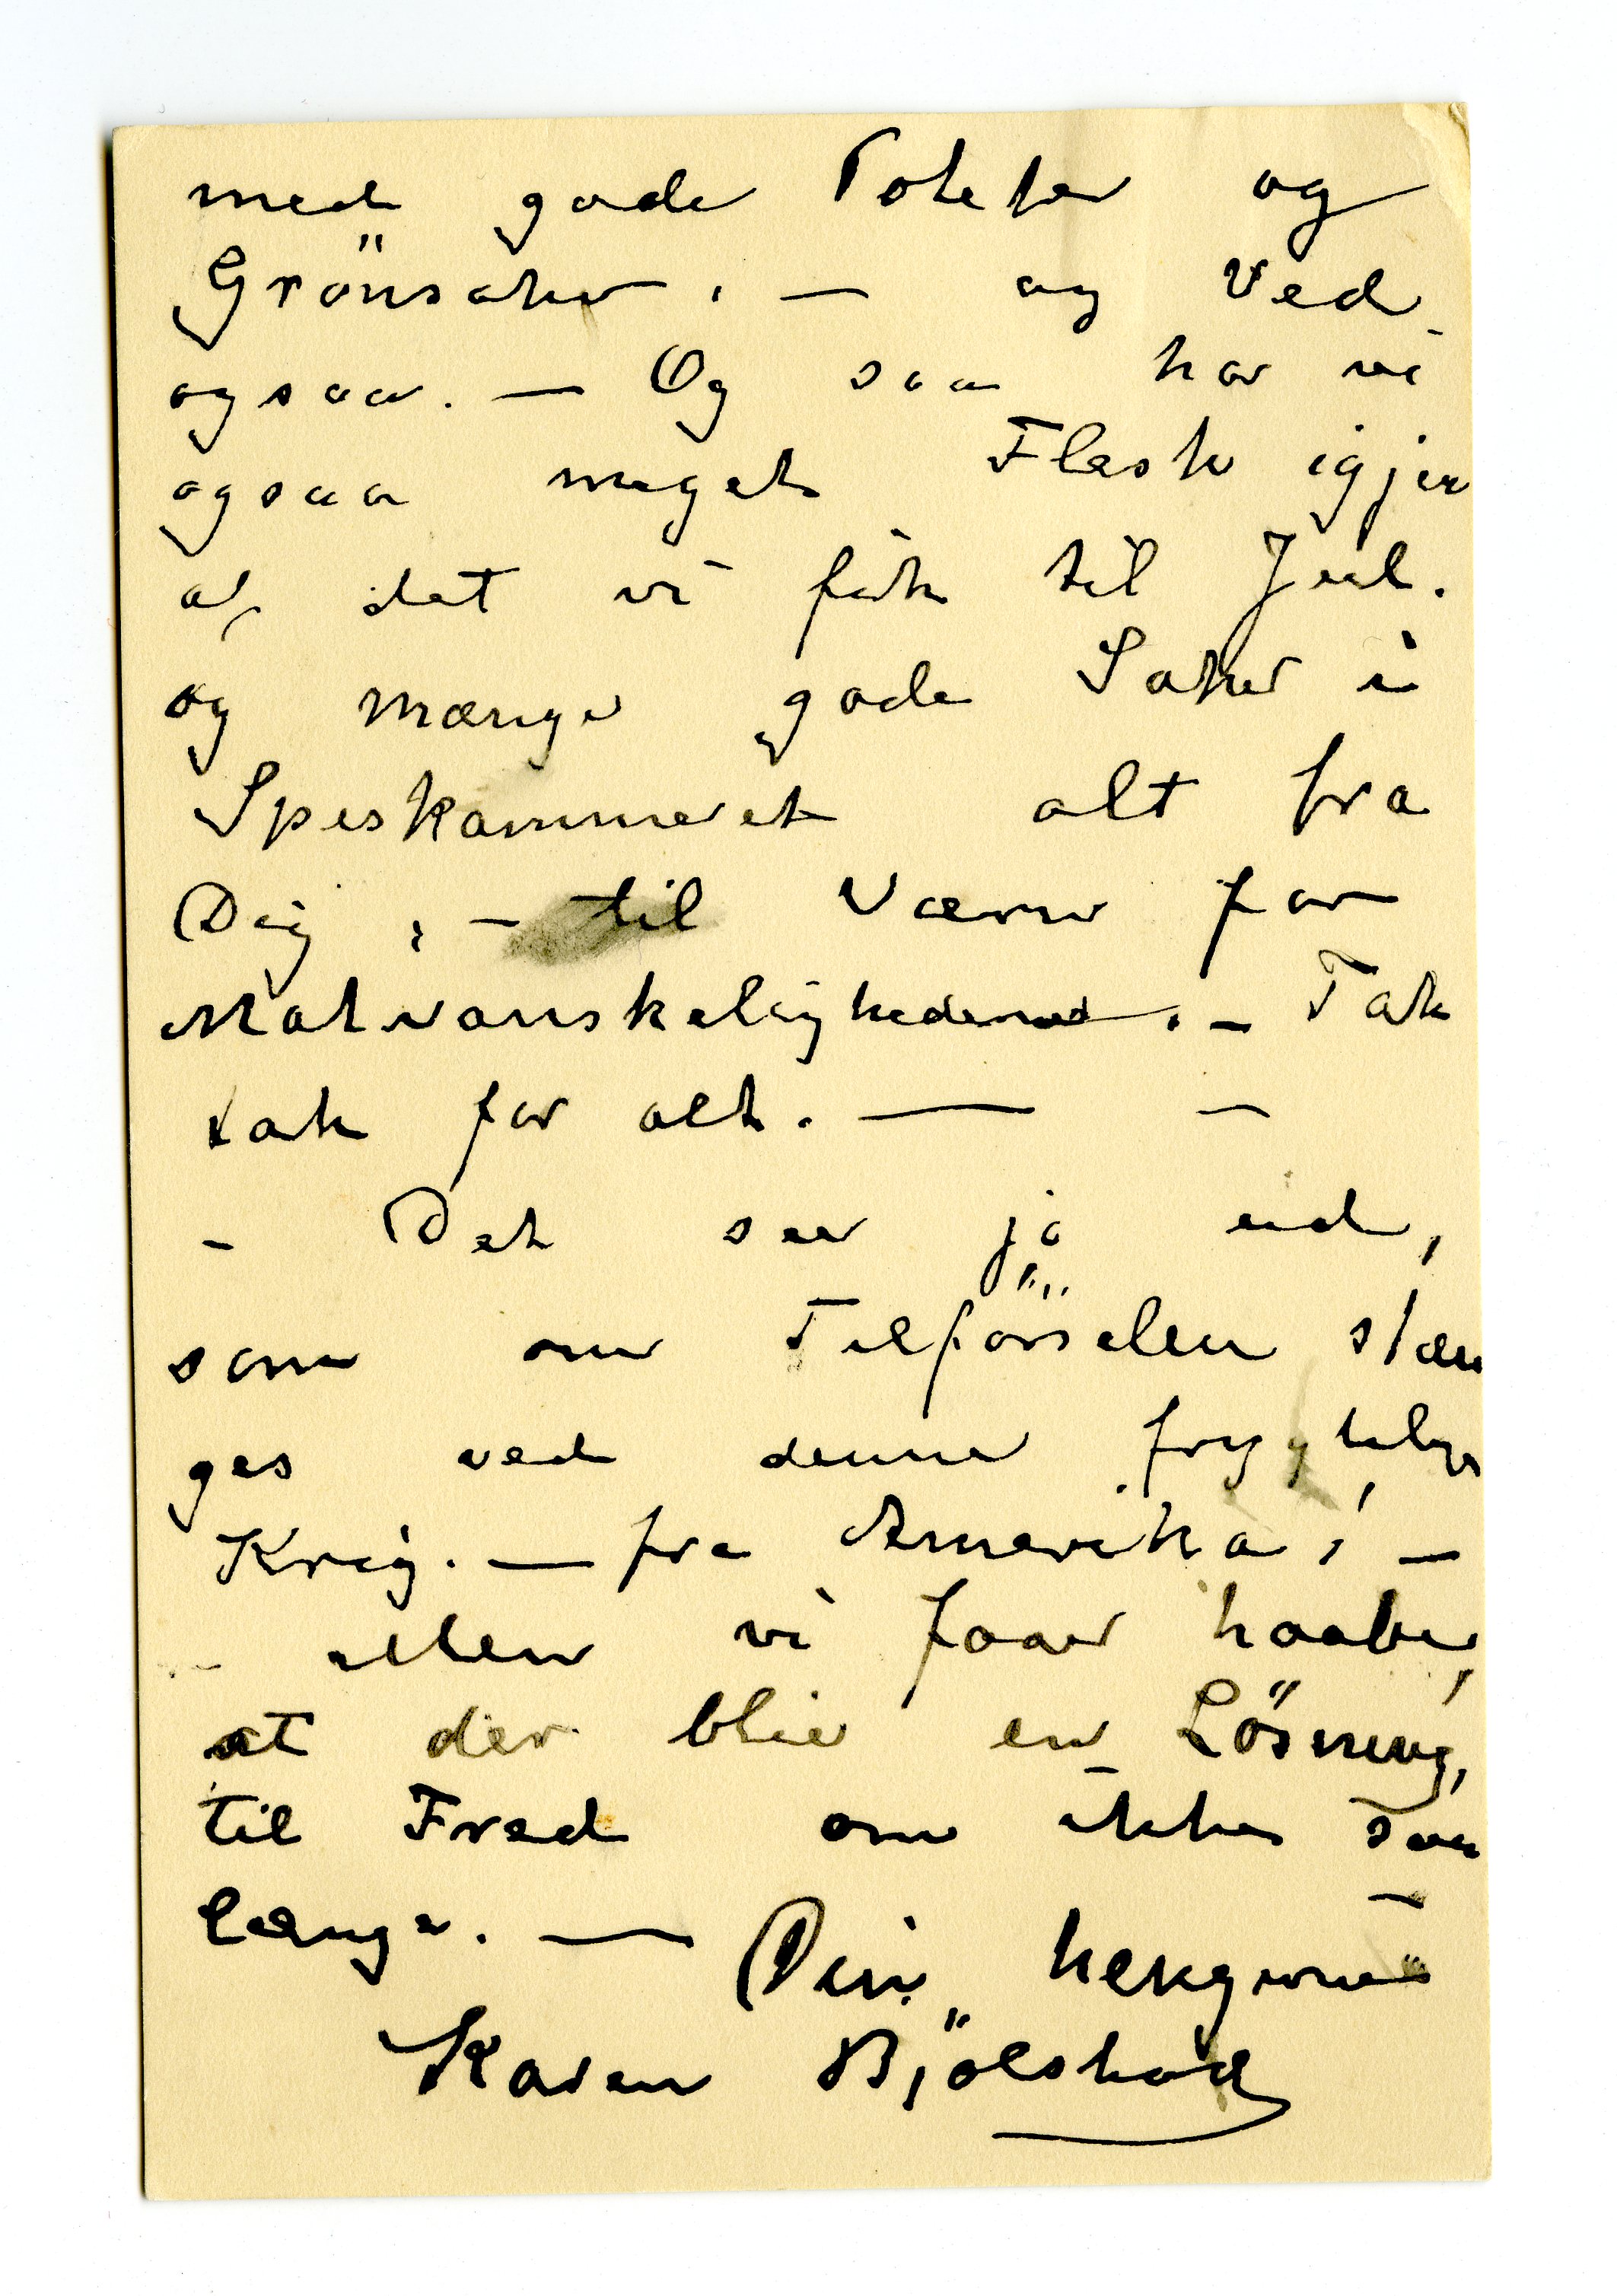 med gode Poteter og
Grönsaker, — og Ved
ogsaa. — Og saa har vi
ogsaa meget Flesk igjen
af det vi fik til Jul.
og mange gode Saker i
Speskammeret alt fra
Dig, — til Værn for
Matvanskelighederne. — Tak
tak for alt. — —
– Det seer jo ud,
som om Tilförselen stæn
ges ved denne frygtelige
Krig. — fra Amerika, —
– Men vi faar haabe,
at der blir en Lösning,
til Fred om ikke saa
længe. — Din hengivne
Karen Bjölstad